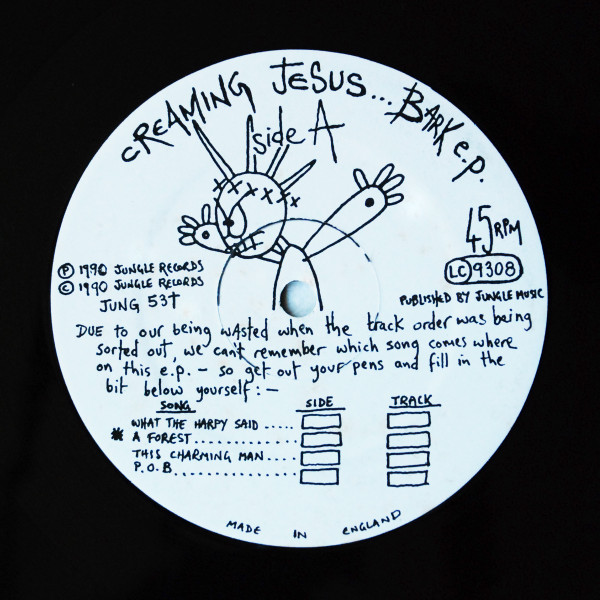 CREAMING JESUS... BARK e.p.
side A
45 RPM
LC 9308
Ⓟ 1990 JUNGLE RECORDS
© 1990 JUNGLE RECORDS
JUNG 53T
PUBLISHED BY JUNGLE MUSIC
DUE to our being wAsted when the track order was being
sorted out, we cant remember which song comes where
on this e.p. – so get out your pens and fill in the
bit below yourself:–
SONG SIDE TRACK
WHAT THE HARPY SAID .....
* A FOREST............
THIS CHARMING MAN....
P.O.B...............
MADE IN ENGLAND